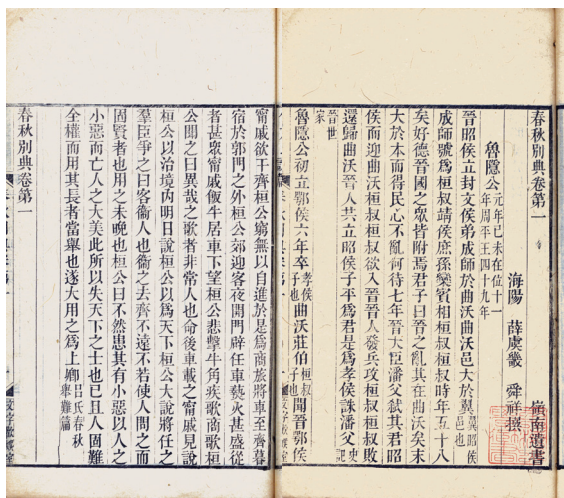 春秋別典卷第一 嶺南遺書
海陽 薛虞畿 舜祥撰
魯隱公 元年己未在位十一年周平王四十九年
晉昭侯立封文侯弟成師於曲沃曲沃邑大於翼翼昭侯邑也
成師號爲桓叔靖侯庶孫欒賓相桓叔桓叔時年五十八
矣好德晉國之眾皆附焉君子曰晉之亂其在曲沃矣末
大於本而得民心不亂何待七年晉大臣潘父弑其君昭
侯而迎曲沃桓叔桓叔欲入晉晉人發兵攻桓叔桓叔敗
還歸曲沃晉人共立昭侯子平爲君是爲孝侯誅潘父史記
晉世家
魯隱公初立鄂侯六年卒孝侯子也曲沃莊伯桓叔子也聞晉鄂侯
甯戚欲干齊桓公窮無以自進於是爲商旅將車至齊暮
宿於郭門之外桓公郊迎客夜開門辟任車爇火甚盛從
者甚眾甯戚飯牛居車下望桓公悲擊牛角疾歌商歌桓
公聞之曰異哉之歌者非常人也命後車載之甯戚見說
桓公以治境內明日說桓公以爲天下桓公大說將任之
羣臣爭之曰客衞人也衞之去齊不遠不若使人問之而
固賢者也用之未晚也桓公曰不然患其有小惡以人之
小惡而亡人之大美此所以失天下之士也已且人固難
全權而用其長者當舉也遂大用之爲上卿呂氏春秋舉難篇
春秋別典卷第一